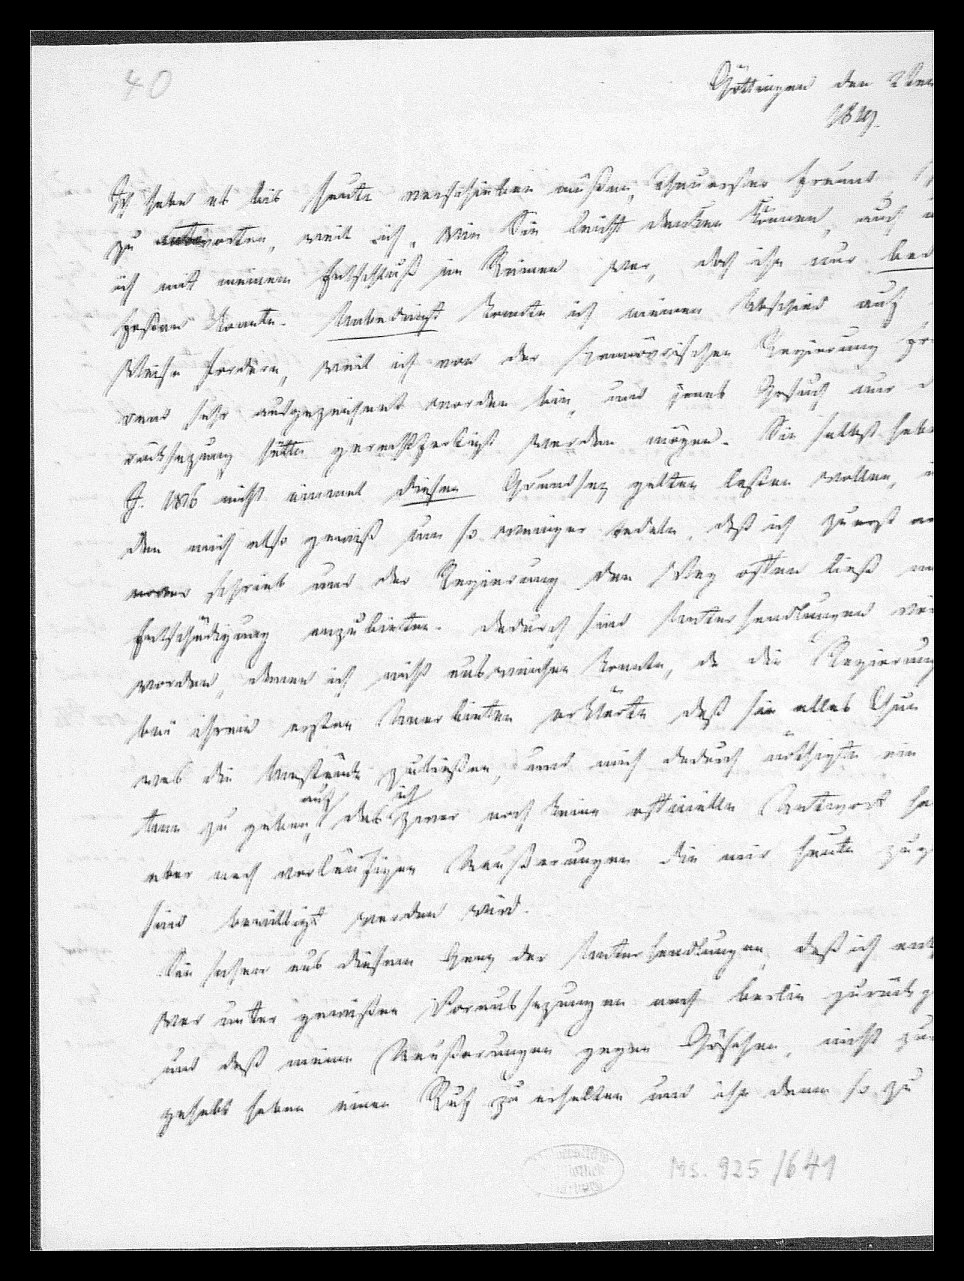 40
Göttingen den 2ten
1819.
Ich habe es bis heute verschieben müßen, theuerster Freund,
zu antworten, weil ich, wie Sie leicht denken können, auch
ich mit meinem Entschluß im Reinen war, doch ihn nur
faßen konnte. Unbedingt konnte ich meinen Abschied auf
Weise fordern, weil ich von der hannövrischen Regierung
und sehr ausgezeichnet worden bin, und jenes Gesuch nur
rücksezung hätte gerechtfertigt werden mögen. Sie selbst haben
J. 1816 nicht einmal diesen Grundsaz gelten laßen wollen,
den mich also gewiß um so weniger tadeln, daß ich zuerst
schrieb und der Regierung den Weg offen ließ
Entschädigung anzubieten. Dadurch sind Unterhandlungen
worden, denen ich nicht ausweichen konnte, da die Regierung
bei ihrem ersten Anerbieten erklärte daß sie alles thun
was die Umstände zuließen, und mich dadurch nöthigte ein
zu geben, auf das ich zwar noch keine officielle Antwort
aber nach vorläufigen Aeußerungen die mir heute
sind bewilligt werden wird.
Sie sehen aus diesem Gang der Unterhandlungen, daß ich
war unter gewißen Voraussezungen nach Berlin
und daß meine Aeußerungen gegen Göschen, nicht
gehabt haben einen Ruf zu erhalten und ihn dann so zu
Ms. 925/641